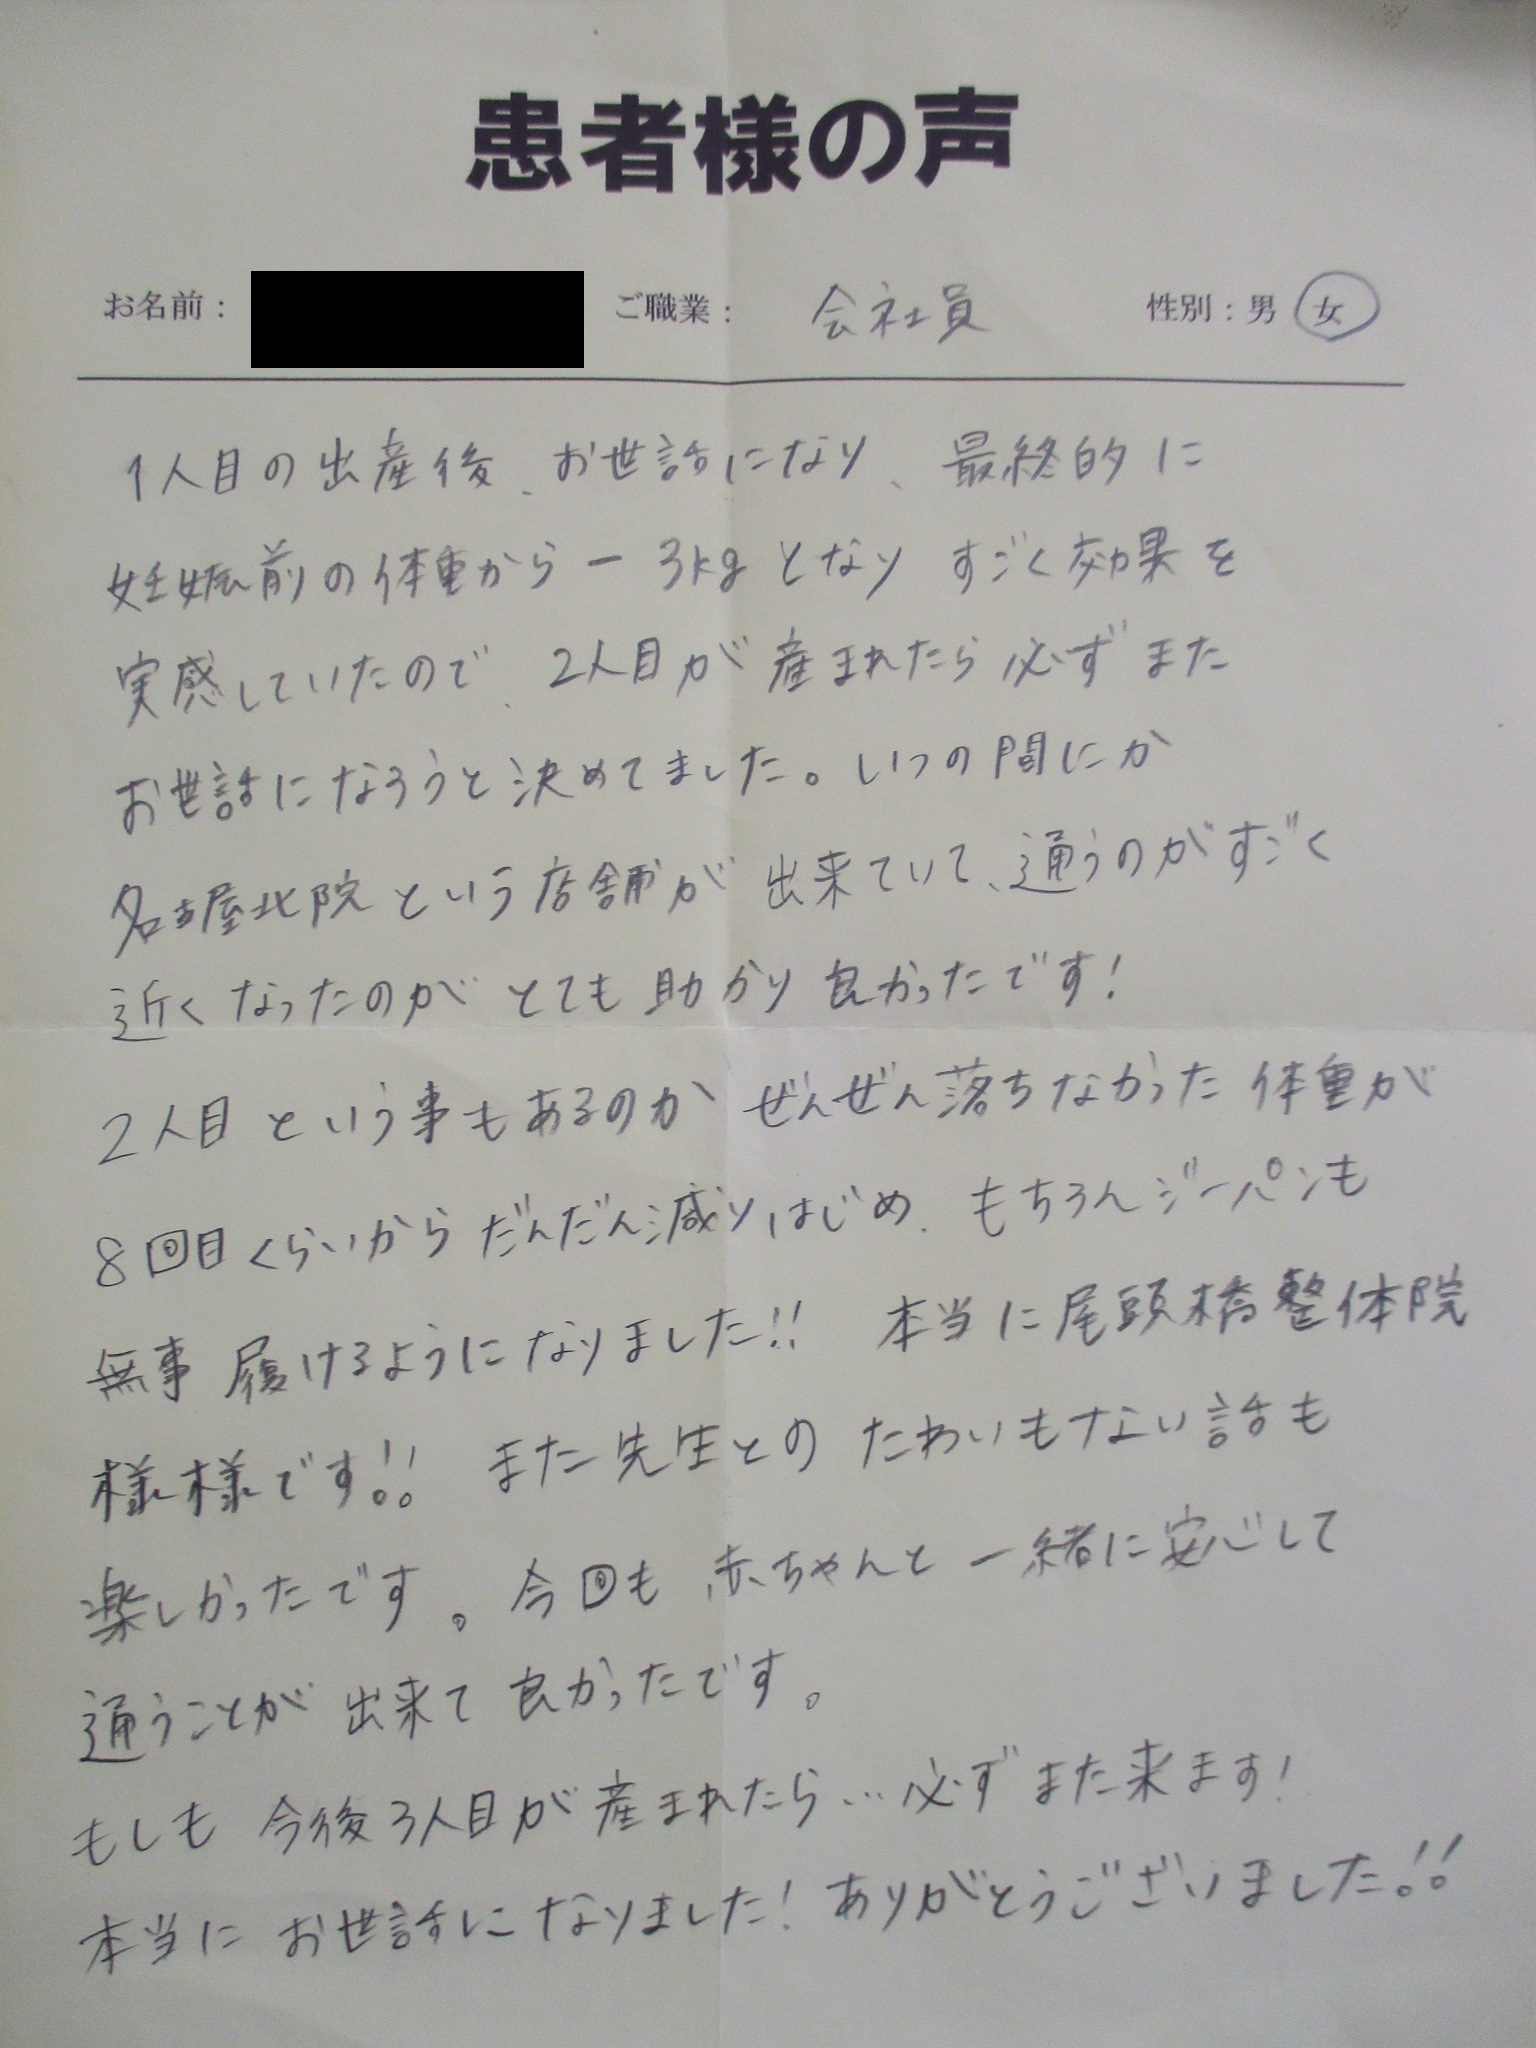 患者様の声
お名前: ご職業: 会社員 性別:男 女
1人目の出産後、お世話になり、最終的に
妊娠前の体重からー3kgとなり すごく効果を
実感していたので、2人目が産まれたら必ずまた
お世話になろうと決めてました。いつの間にか
名古屋北院という店舗が出来ていて、通うのがすごく
近くなったのがとても助かり良かったです!
2人目という事もあるのかぜんぜん落ちなかった体重が
8回目くらいからだんだん減りはじめ、もちろんジーパンも
無事履けるようになりました!! 本当に尾頭橋整体院
様様です!! また先生とのたわいもない話も
楽しかったです。今回も赤ちゃんと一緒に安心して
通うことが出来て良かったです。
もしも今後3人目が産まれたら…必ずまた来ます!
本当にお世話になりました!ありがとうございました!!